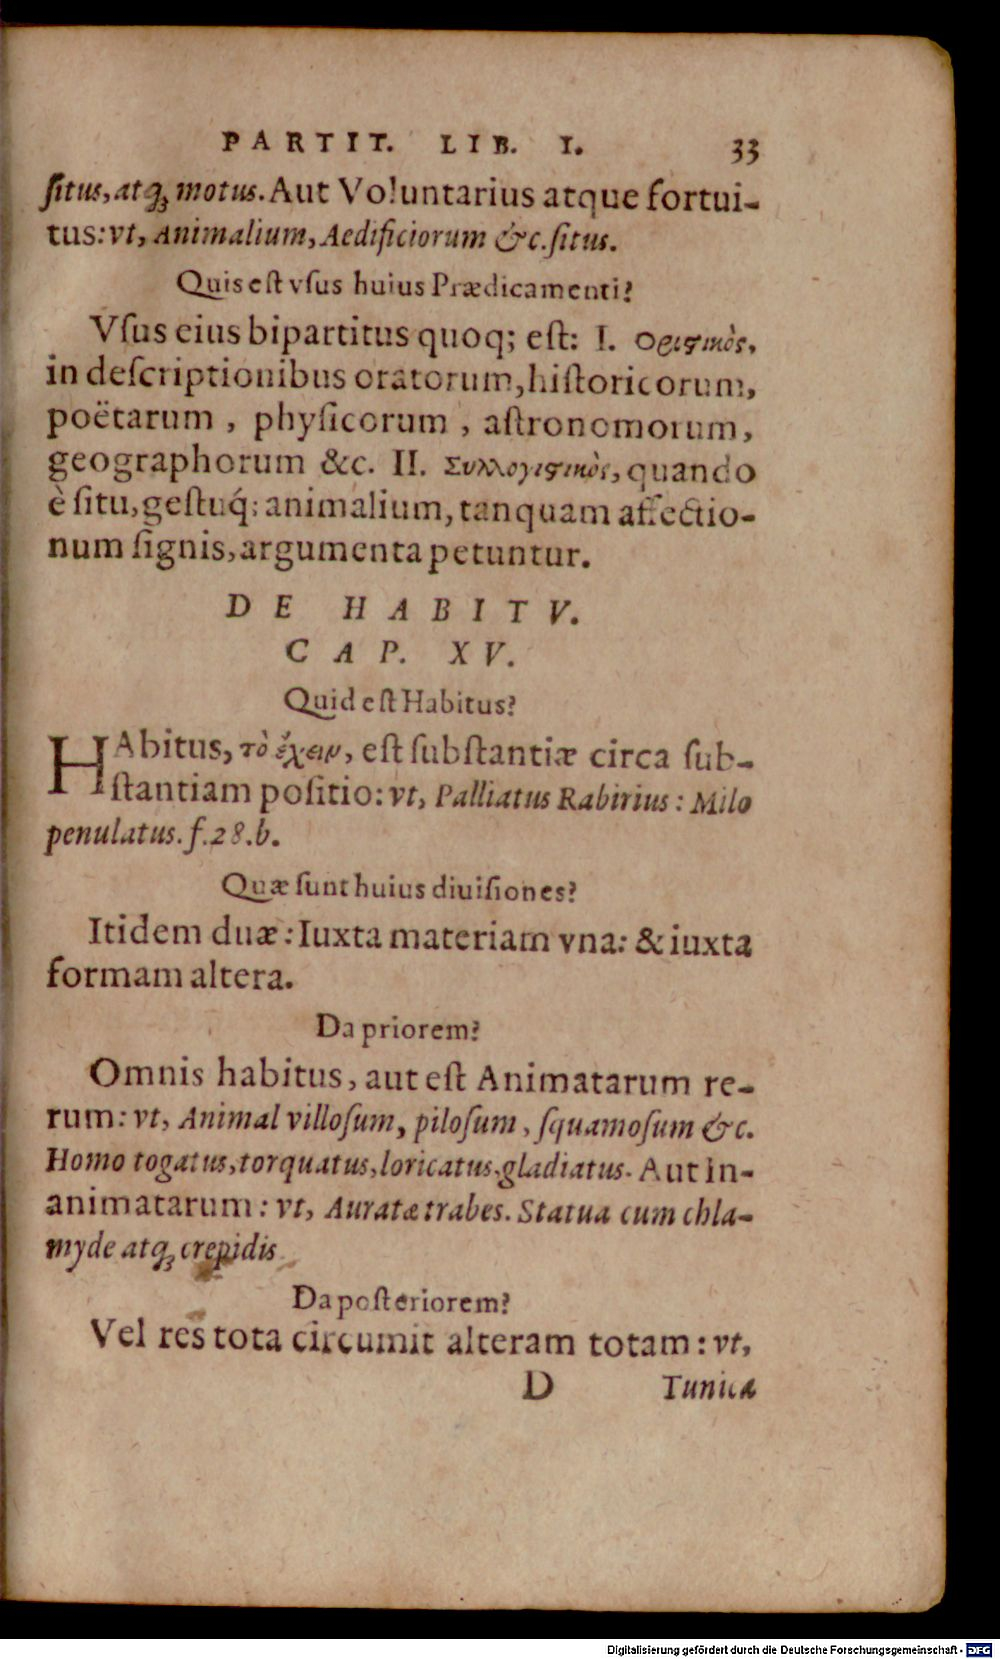 PARTIT. LIB. I. 33
ſitus, atq́ꝫ motus. Aut Voluntarius atque fortui-
tus: vt, Animalium, Aedificiorum &c. ſitus.
Quis eſt vſus huius Prædicamenti?
Vſus eius bipartitus quoq; eſt: I. Ορισμὸς,
in deſcriptionibus oratorum, hiſtoricorum,
poëtarum, phyſicorum, aſtronomorum,
geographorum &c. II. Συλλογισμὸς, quando
è ſitu, geſtuq́; animalium, tanquam affectio-
num ſignis, argumenta petuntur.
DE HABITV.
CAP. XV.
Quid eſt Habitus?
HAbitus, τὸ ἔχειν, eſt ſubſtantiæ circa ſub-
ſtantiam poſitio: vt, Palliatus Rabirius: Milo
penulatus. f. 28. b.
Quæ ſunt huius diuiſiones?
Itidem duæ: Iuxta materiam vna: & iuxta
formam altera.
Da priorem?
Omnis habitus, aut eſt Animatarum re-
rum: vt, Animal villoſum, piloſum, ſquamoſum &c.
Homo togatus, torquatus, loricatus, gladiatus. Aut In-
animatarum: vt, Auratæ trabes. Statua cum chla-
myde atqꝫ crepidis
Da poſteriorem?
Vel res tota circumit alteram totam: vt,
D Tunica
Digitalisierung gefördert durch die Deutsche Forschungsgemeinschaft - DFG